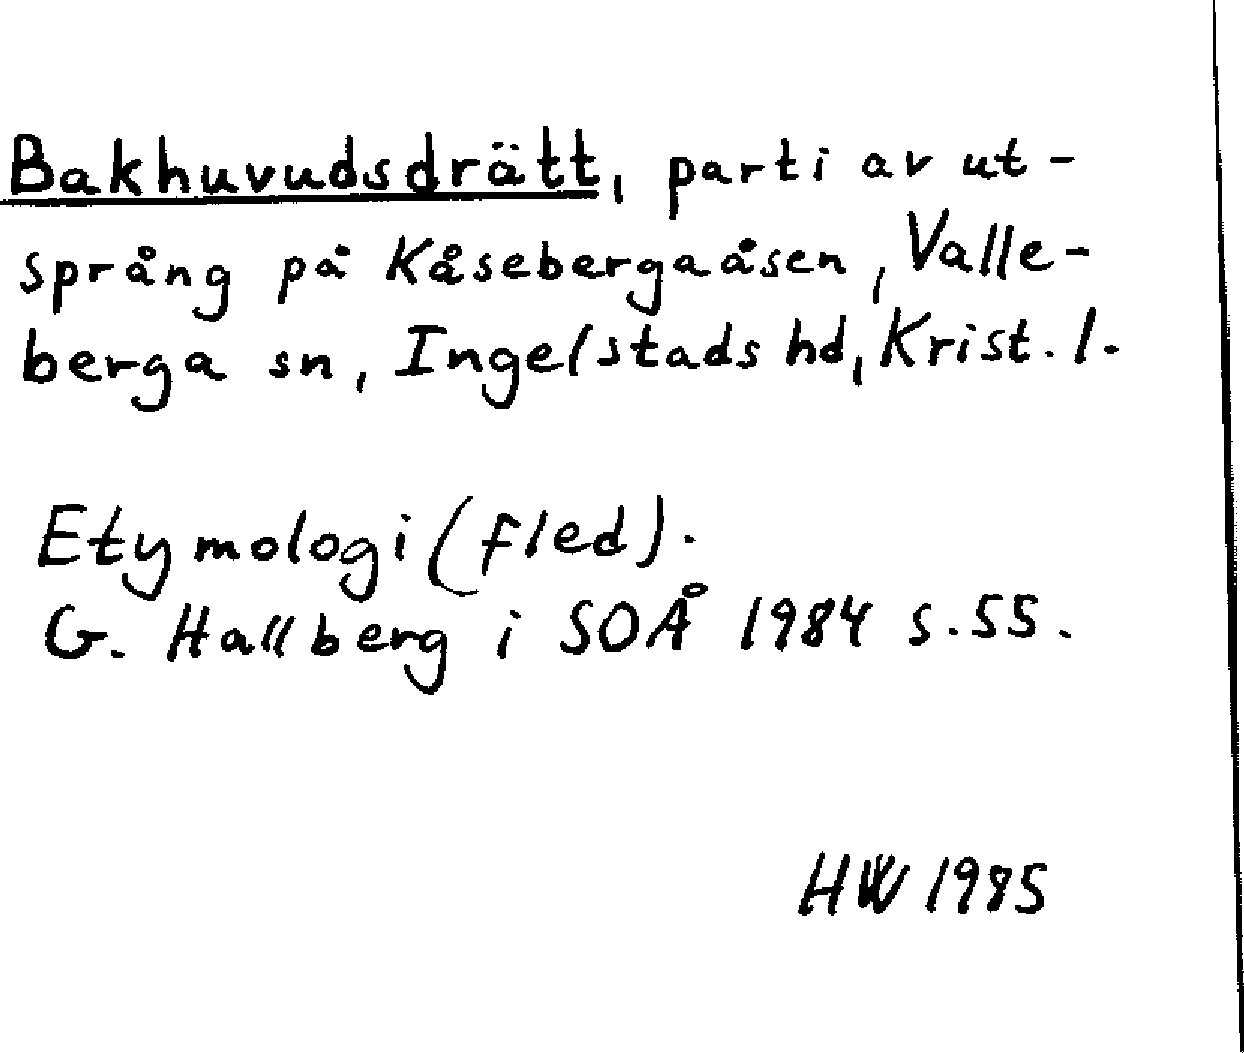 Bakhuvudsdrätt, parti av ut-
språng på Kåsebergaåsen, Valle-
berga sn, Ingelstads hd, Krist. l.
Etymologi (fled).
G. Hallberg i SOÅ 1984 s. 55.
HW 1985